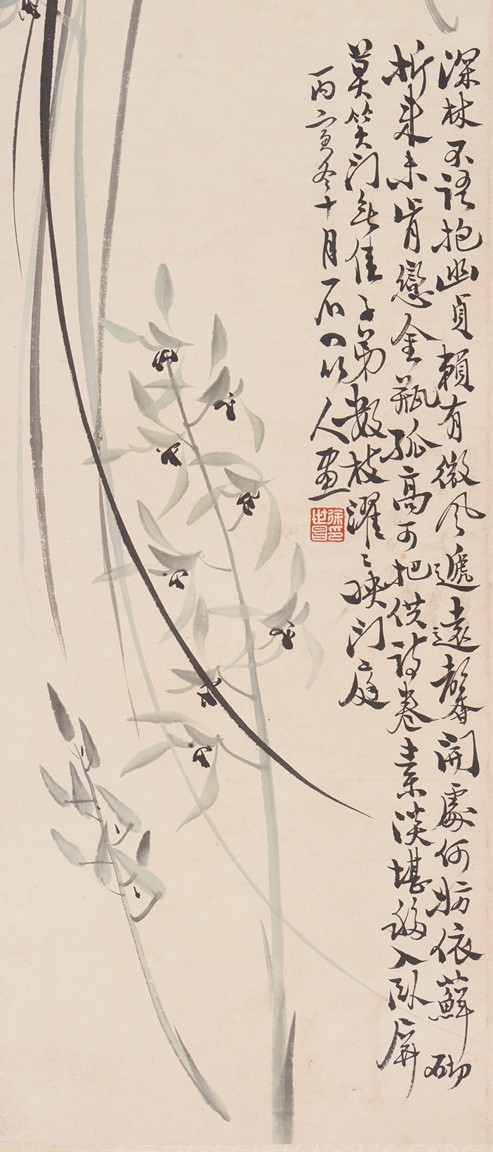 深林不語抱幽貞賴有微風遞遠馨開處何妨依蘚砌
折來未肯戀金瓶孤高可把供詩卷素淡堪移入臥屏
莫笑門無佳子弟數枝濯々映門庭
丙寅冬十月石門山人畫
徐印世昌